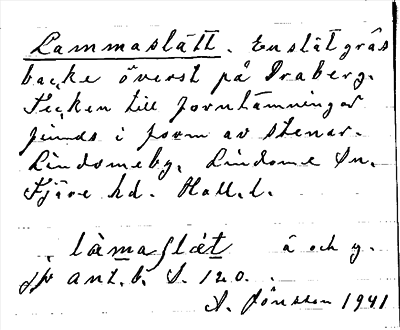 Lammaslätt. En slät gräs
backe överst på Draberg.
Tecken till fornlämningar
finns i form av stenar.
Lindsmeby, Lindome Sn.
Fjäre hd. Hall. l.
ant. b. S. 120.
A. Jönsson 1941